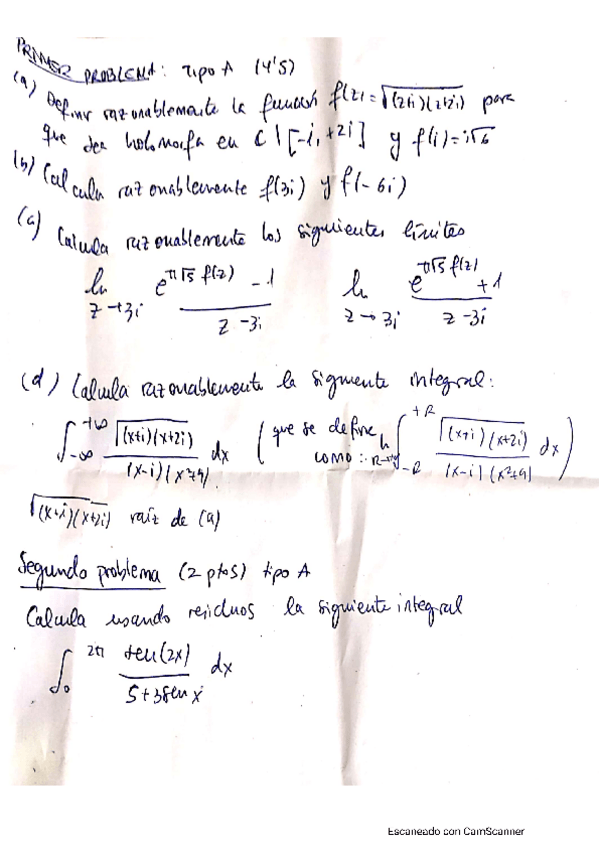 PRIMER PROBLEMA: Tipo A (4'5)
(a) Definir razonablemente la función f(z) = √(z+i)(z+2i) para
que sea holomorfa en C \ [-i, +2i] y f(i) = i√6
(b) Calcula razonablemente f(3i) y f(-6i)
(c) Calcula razonablemente los siguientes límites
lim z→3i (e^{π√5 f(z)} - 1)/(z - 3i)    lim z→3i (e^{π√5 f(z)} + 1)/(z - 3i)
(d) Calcula razonablemente la siguiente integral:
∫_{-∞}^{+∞} √(x+i)(x+2i) / (x-i)(x²+9) dx (que se define como: lim R→+∞ ∫_{-R}^{+R} √(x+i)(x+2i) / (x-i)(x²+9) dx)
√(x+i)(x+2i) raíz de (a)
Segundo problema (2 ptos) tipo A
Calcula usando residuos la siguiente integral
∫_0^{2π} sen(2x) / 5+3sen x dx
Escaneado con CamScanner